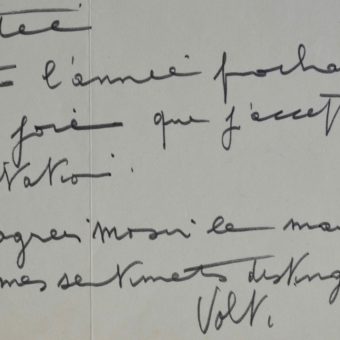 l'année procha
joie que j'accet
itation.
agréi mosi le mar
mes sentimets disting
Volt.